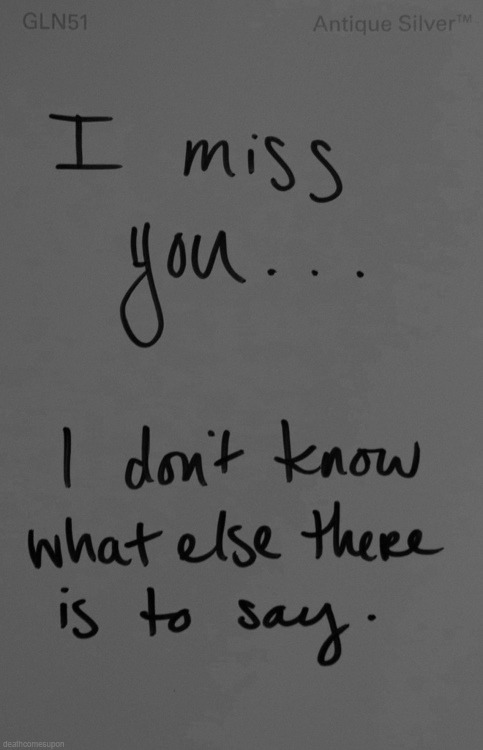 GLN51 Antique Silver™
I miss
you...
I don't know
what else there
is to say.
deathcomesupon